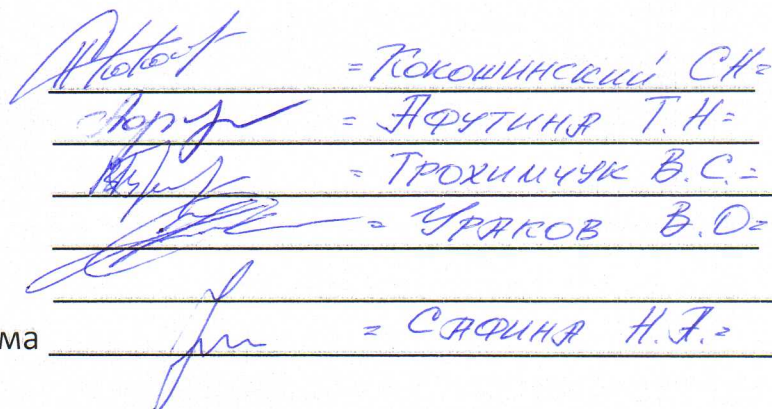 = Кокошинский СН =
= Афутина Т.Н =
= Трохимчук В.С. =
= Ураков В.О =
ма = Сафина Н.А. =